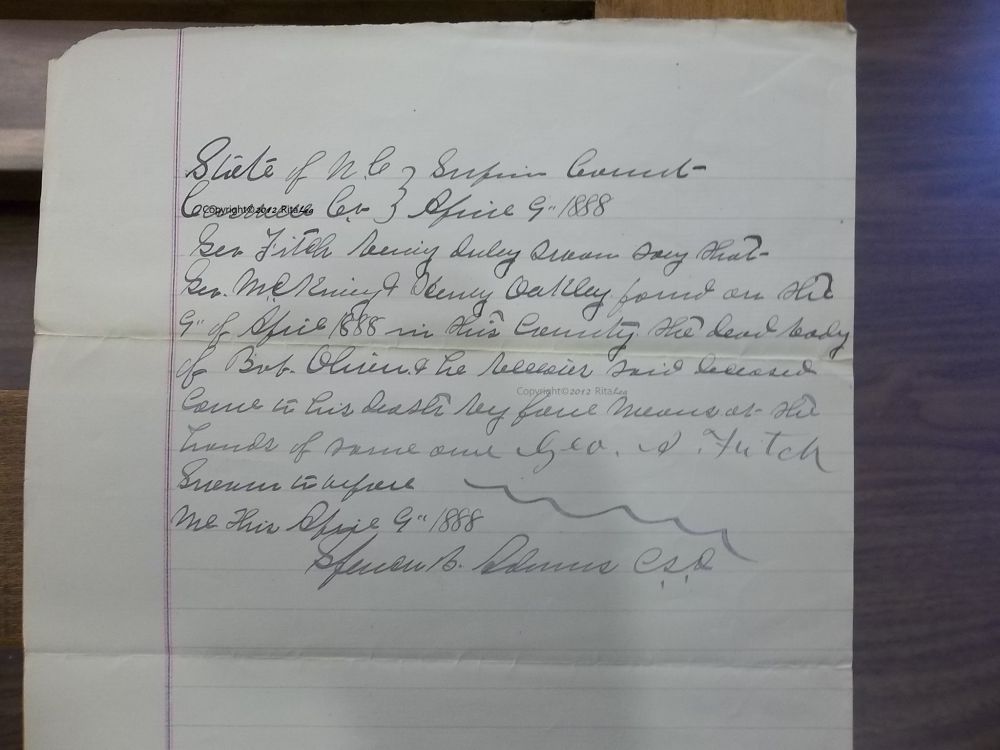 State of N. C } Superior Court
Caswell Co } April 9" 1888
Copyright©2012 RitaLea
Geo Fitch being duley sworn say that
Geo. McKiney & Henry Oakley found on the
9" of April 1888 in this County the dead body
of Bob. Oliver & he beleaves said deceased
Copyright©2012 RitaLea
Come to his death by foul means at the
hands of some one Geo. A. Fitch
Sworn to before
me this April 9" 1888
Spencer B. Adams C.S.C